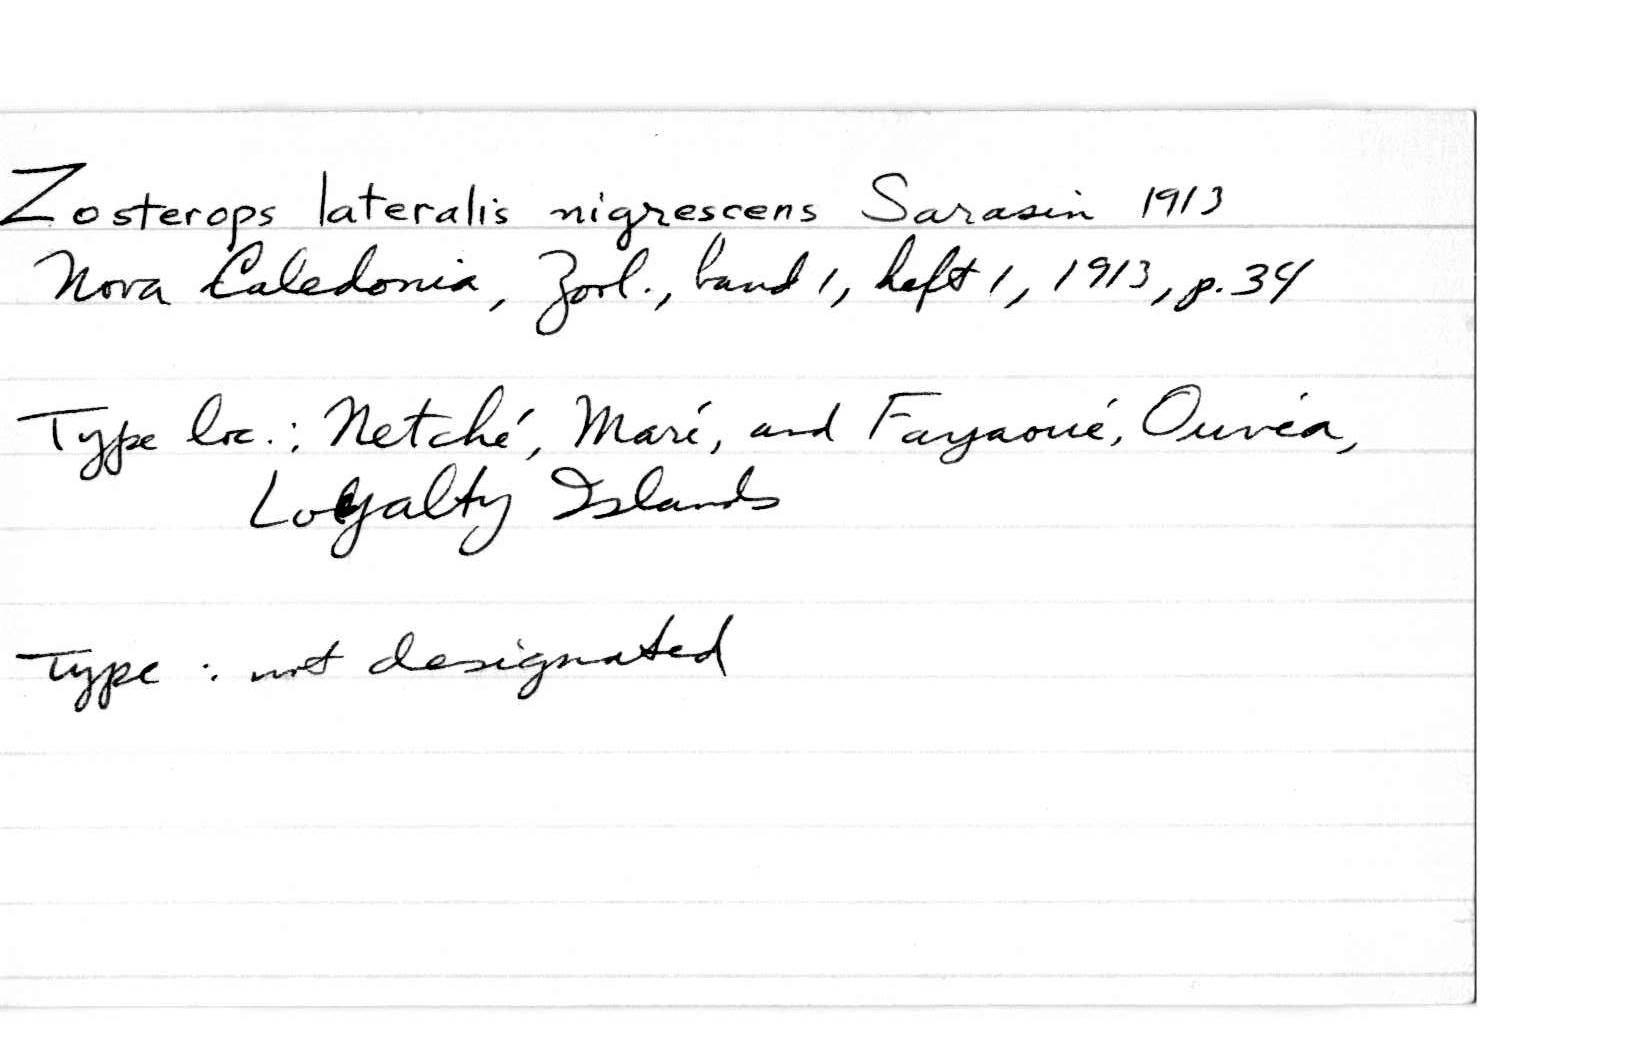 Zosterops lateralis nigrescens Sarasin 1913
Nova Caledonia, Zool., band 1, heft 1, 1913, p. 34
Type loc.: Netché, Maré, and Fayaoué, Ouvéa,
Loyalty Islands
Type : not designated